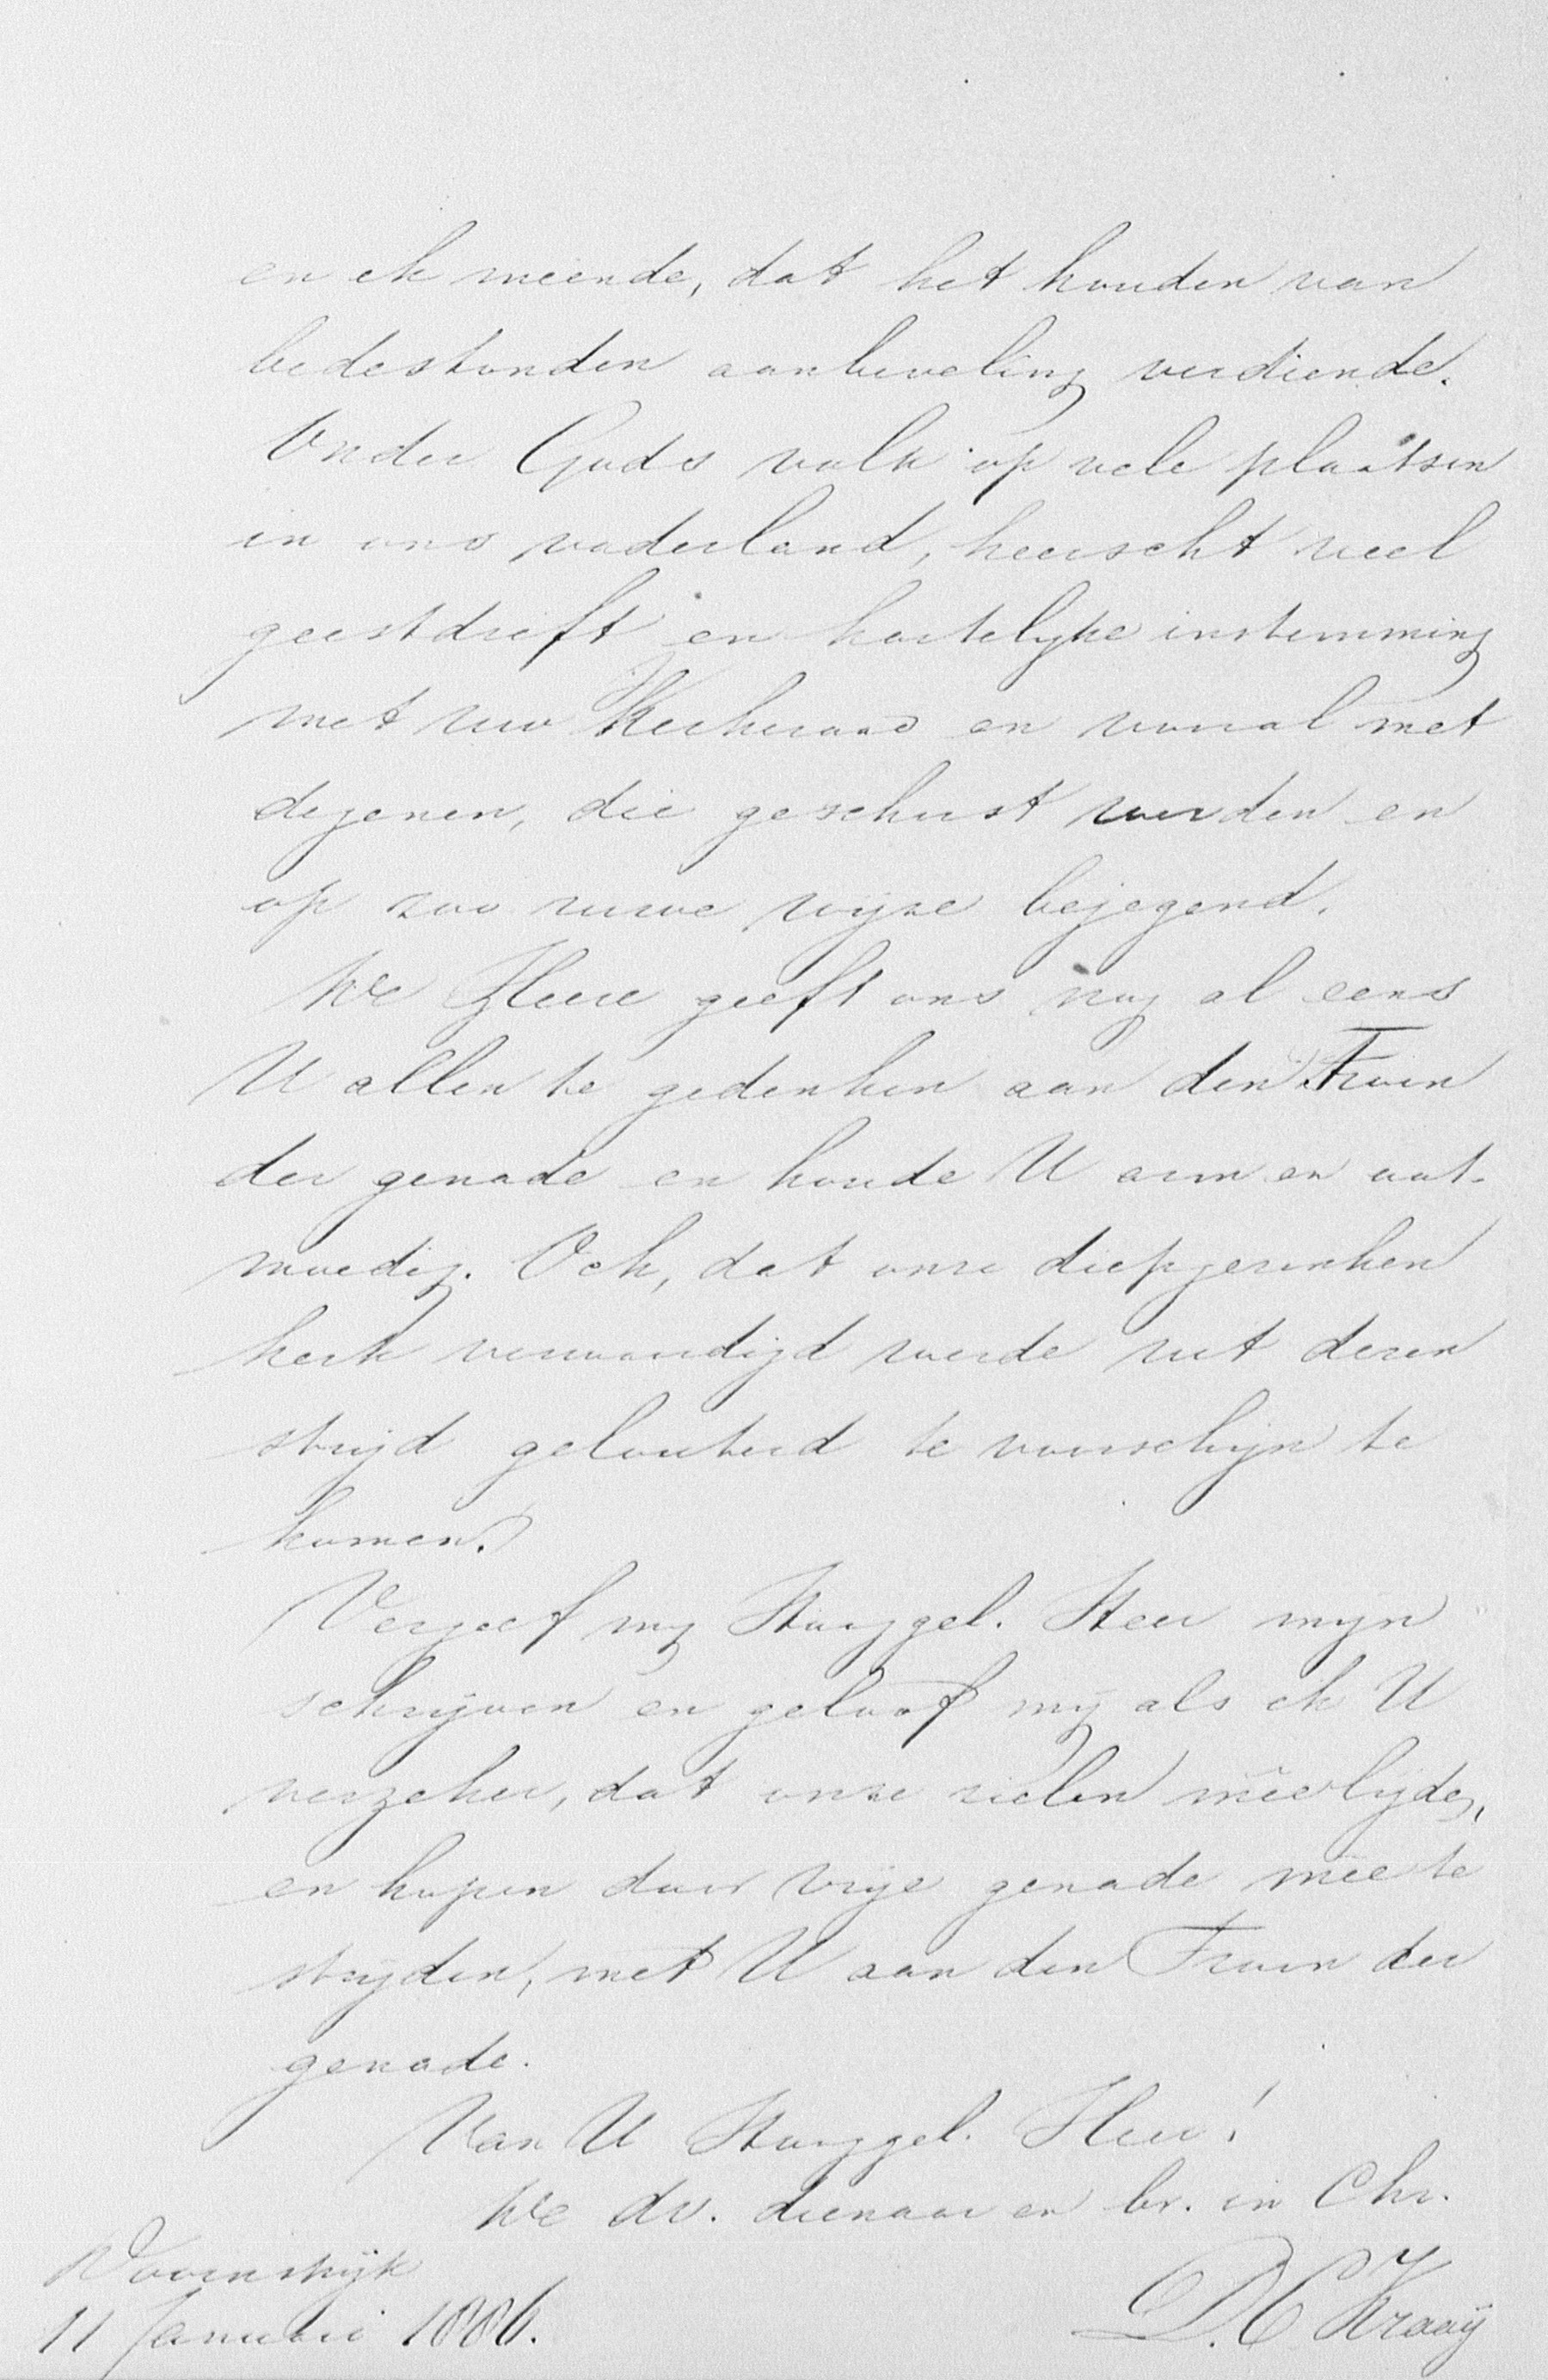 en ik meende, dat het houden van
bedestonden aanbeveling verdiende.
Onder Gods volk op vele plaatsen
in ons vaderland, heerscht veel
geestdrift en hartelyke instemming
met uw Kerkeraad en vooral met
degenen, die geschorst werden en
op zoo ruwe wijze bejegend.
De Heere geeft ons nog al eens
U allen te gedenken aan den Troon
der genade en houde U arm en oot-
moedig. Och, dat onze diepgezonken
kerk verwaardigd worde uit dezen
strijd gelouterd te voorschijn te
komen.
Vergeef mij Hooggel. Heer mijn
schrijven en geloof mij als ik U
verzeker, dat onze zielen meêlijden,
en hopen door vrije genade meê te
strijden, met U aan den Troon der
genade.
Van U Hooggel. Heer!
De dv. dienaar en br. in Chr.
11 Januari 1886.
D. C Kraaij